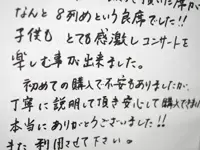 頂いた席が
なんと8列めという良席でした!!
子供もとても感激しコンサートを
楽しむ事が出来ました。
初めての購入で不安もありましたが、
丁寧に説明して頂き安心して購入できました
本当にありがとうございました!!
また利用させて下さい。